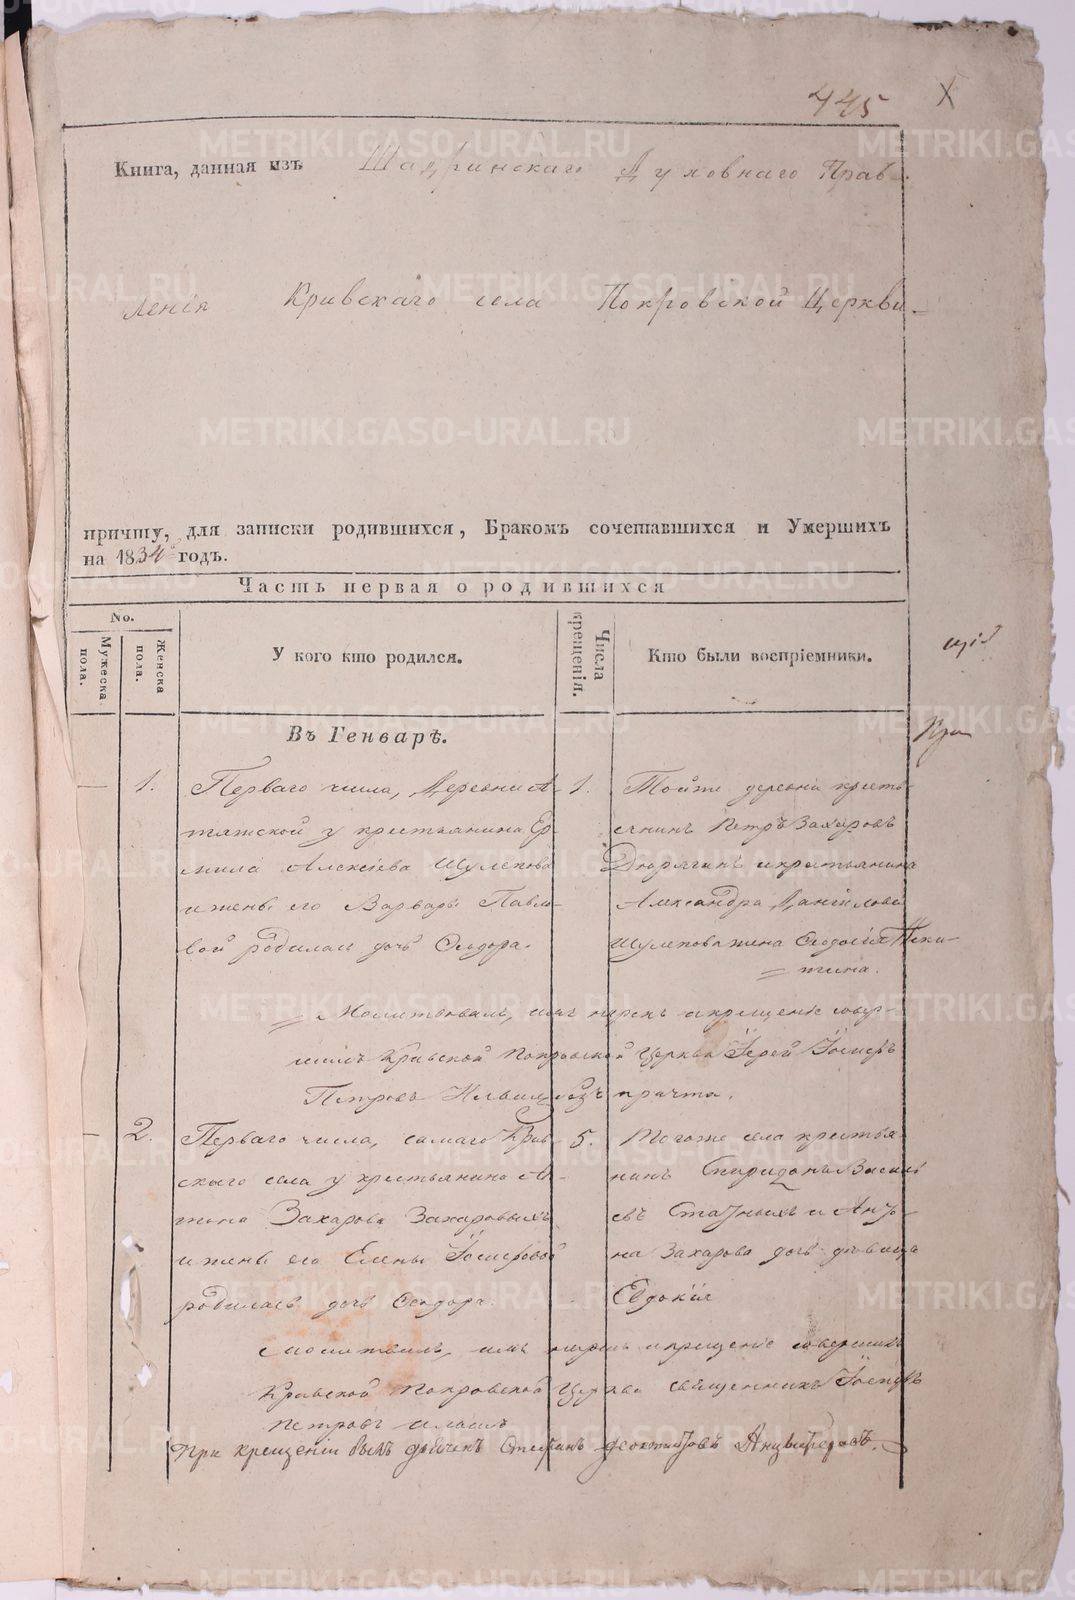 445 X
Книга, данная изъ Шадринскаго Духовнаго Прав-
ленія Кривскаго села Покровской Церкви
причту, для записки родившихся, Бракомъ сочетавшихся и Умершихъ
на 1834 годъ.
Часть первая о родившихся
No.
Мужеска пола.
Женска пола.
У кого кто родился.
Числа крещенія.
Кто были воспріемники.
Въ Генварѣ.
1. Перваго числа, Деревни А-
у крестьянина Ер-
мила Алексѣева Шулепова
и жены его Варвары Павло-
вой родилась дочь Ѳеодора.
1. Тойже деревни кресть-
янинъ Петръ Захаровъ
Дюрягинъ и крестьянина
Александра Даніилова
Шулепова жена Ѳедосія Ники-
тина.
Молитвовалъ, имя нарекъ и крещеніе совер-
шилъ Кривской Покровской Церкви Іерей Іосифъ
Петровъ безъ причта.
2. Перваго числа, самаго Крив-
скаго села у крестьянина
Захарова Захаровыхъ
и жены его Елены Іосифовой
родилась дочь Ѳеодора.
5. Тогоже села крестья-
нинъ Спиридонъ Василь
евъ и
на Захарова дочь дѣвица
Евдокія
Молитвовалъ, имя нарекъ и крещеніе совершилъ
Кривской Покровской Церкви священникъ Іосифъ
Петровъ
При крещеніи былъ дьячекъ Стефанъ Анцыферовъ.